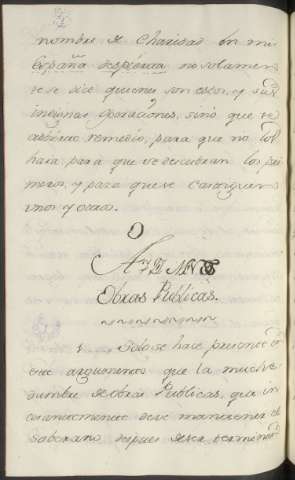 nombre de Charidad. En mi
España despierta no solamen
te se dice quienes son estos, y sus
indignas operaciones, sino que se
remedio, para que no
haya, para que se descubran los pri
meros, y para que se castiguen
unos y otros.
Obras Publicas.
1 Solo se hace presente
este argumento que la muche
dumbre de obras Publicas, que in
cesantemente deve mantener el
soberano despues de ser